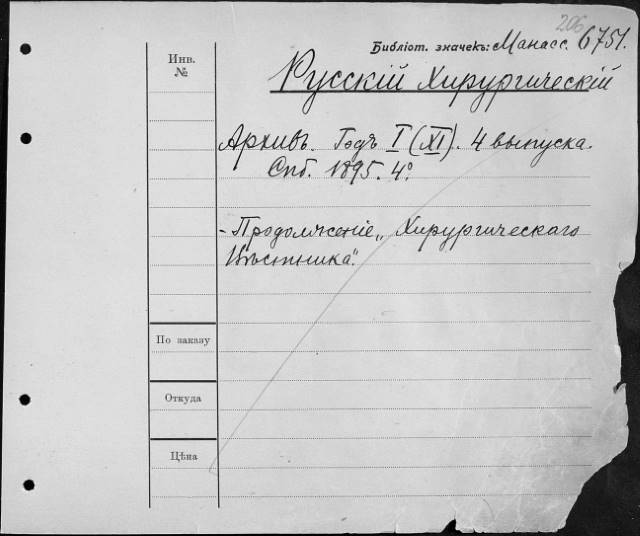 206
Инв.
№
Библіот. значекъ: Манасс. 6751.
Русскій Хирургическій
Архивъ. Годъ I (XI). 4 выпуска.
Спб. 1895. 4°.
- Продолженіе „Хирургическаго
Вѣстника".
По заказу
Откуда
Цѣна